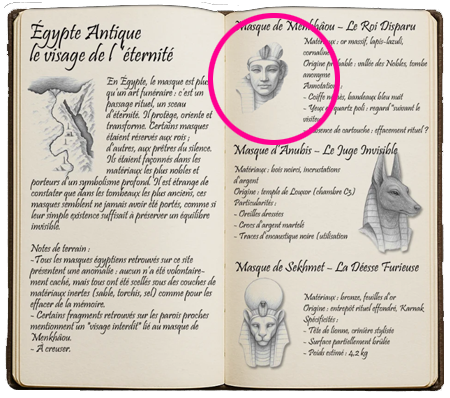 Égypte Antique
le visage de l'éternité
En Égypte, le masque est plus
qu'un art funéraire : c'est un
passage rituel, un sceau
d'éternité. Il protège, oriente et
transforme. Certains masques
étaient réservés aux rois ;
d'autres, aux prêtres du silence.
Ils étaient façonnés dans les
matériaux les plus nobles et
porteurs d'un symbolisme profond. Il est étrange de
constater que dans les tombeaux les plus anciens, ces
masques semblent ne jamais avoir été portés, comme si
leur simple existence suffisait à préserver un équilibre
invisible.
Notes de terrain :
-Tous les masques égyptiens retrouvés sur ce site
présentent une anomalie : aucun n'a été volontaire-
ment caché, mais tous ont été scellés sous des couches de
matériaux inertes (sable, torchis, sel) comme pour les
effacer de la mémoire.
- Certains fragments retrouvés sur les parois proches
mentionnent un "visage interdit" lié au masque de
Menkhâou.
- À creuser.
Masque de Menkhâou – Le Roi Disparu
Matériaux : or massif, lapis-lazuli,
cornaline
Origine probable : vallée des Nobles, tombe
anonyme
Annotations :
- Coiffe némès, bandeaux bleu nuit
- Yeux quartz poli : regard "suivant le
visiteur"
- Absence de cartouche : effacement rituel ?
Masque d'Anubis – Le Juge Invisible
Matériaux : bois noirci, incrustations
d'argent
Origine : temple de Louxor (chambre C3)
Particularités :
- Oreilles dressées
- Crocs d'argent martelé
- Traces d'encaustique noire (utilisation
Masque de Sekhmet – La Déesse Furieuse
Matériaux : bronze, feuilles d'or
Origine : entrepôt rituel effondré, Karnak
Spécificités :
- Tête de lionne, crinière stylisée
- Surface partiellement brûlée
- Poids estimé : 4,2 kg